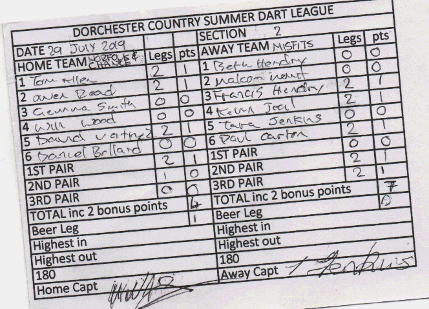 DORCHESTER COUNTRY SUMMER DART LEAGUE
DATE 29 JULY 2019 SECTION 2
HOME TEAM Legs pts AWAY TEAM MISFITS Legs pts
1 Tom Allen 2 1 1 Beth Hendry 0 0
2 Owen Read 2 1 2 Malcom 0 0
3 Gemma Smith 0 0 3 Francis Hendry 2 1
4 Will Wood 0 0 4 Kevin 2 1
5 David 2 1 5 Tara Jenkins 0 0
6 Daniel Ballard 0 0 6 Paul Carton 2 1
1ST PAIR 2 1 1ST PAIR 0 0
2ND PAIR 1 0 2ND PAIR 2 1
3RD PAIR 0 0 3RD PAIR 2 1
TOTAL inc 2 bonus points 4 TOTAL inc 2 bonus points 7
Beer Leg 1 Beer Leg 0
Highest in Highest in
Highest out Highest out
180 180
Home Capt Away Capt T Jenkins